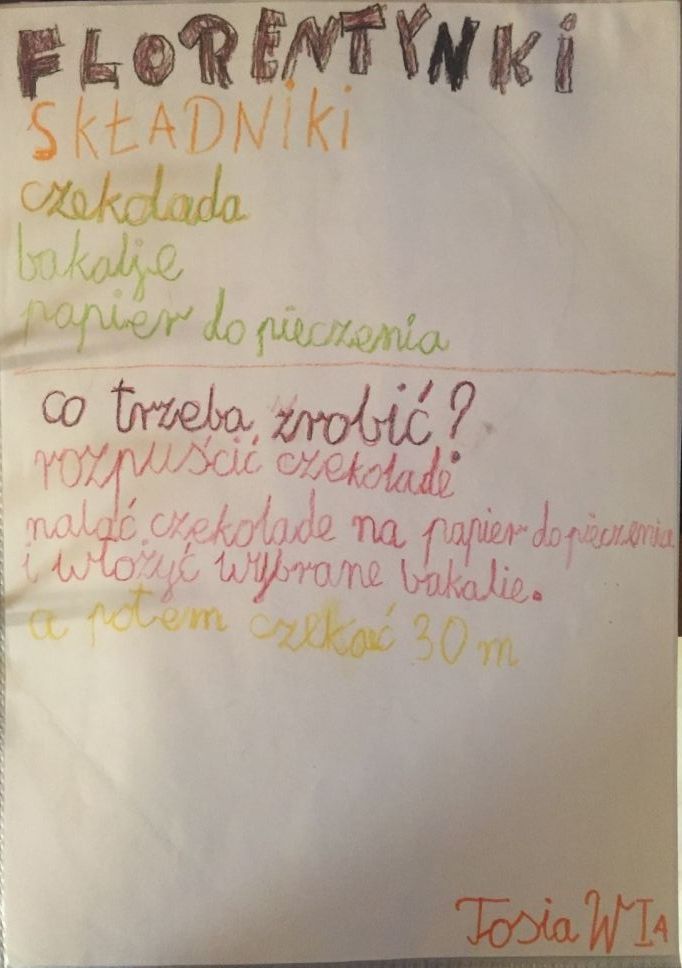 FLORENTYNKi
SKŁADNiKi
czekolada
bakalje
papier do pieczenia
co trzeba zrobić?
rozpuścić czekolade
nalać czekolade na papier do pieczenia
i włożyć wybrane bakalie.
a potem czekać 30 m
Tosia W IA